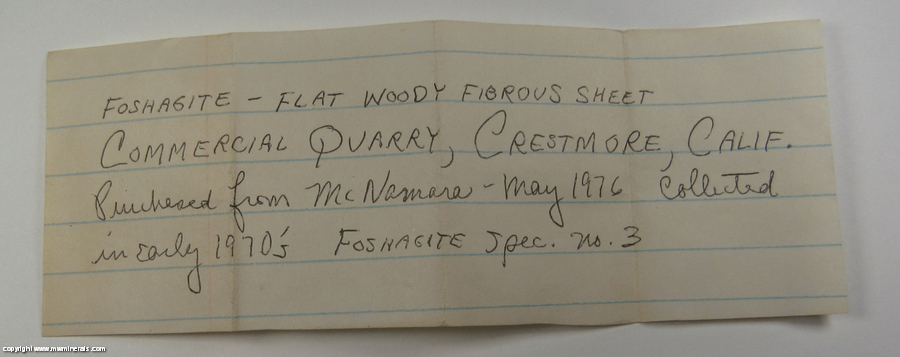 FOSHAGITE - FLAT WOODY FIBROUS SHEET
COMMERCIAL QUARRY, CRESTMORE, CALIF.
Purchased from McNamara - May 1976 Collected
in early 1970's FOSHAGITE spec. no. 3
copyright www.mwminerals.com